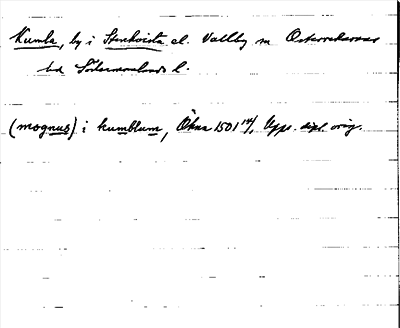 Kumla, by i Stenkvista el. Vallby sn Österrekarnes
hd Södermanlands l.
(mognus) i kumblum, Åkna 1501 14/1 Upps. dipl. orig.